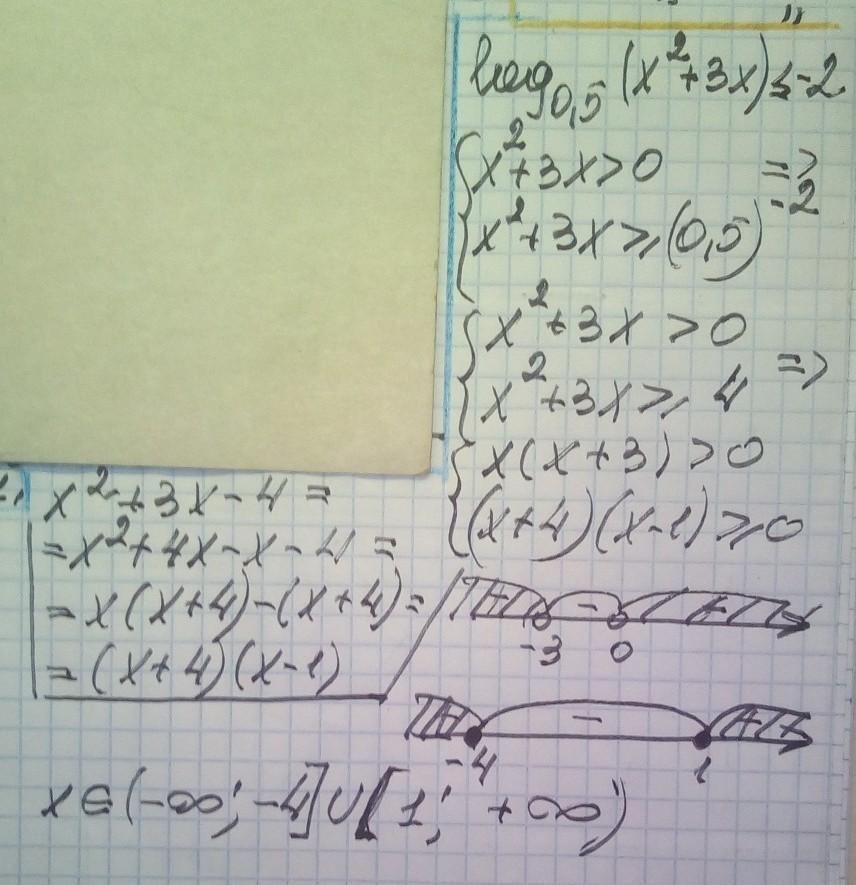 log₀,₅(x²+3x)≤-2
{x²+3x>0 =>
x²+3x⩾(0,5)⁻²
{x²+3x>0
x²+3x⩾4 =>
{x(x+3)>0
(x+4)(x-1)⩾0
x²+3x-4=
=x²+4x-x-4=
=x(x+4)-(x+4)=
=(x+4)(x-1)
+ - +
-3 0
+ - +
-4 1
x∈(-∞; -4]∪[1; +∞)